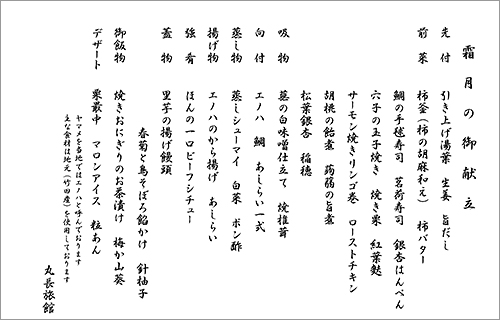 霜月の御献立
先付 引き上げ湯葉 生姜 旨だし
前菜 柿釜(柿の胡麻和え) 柿バター
鯛の手毬寿司 茗荷寿司 銀杏はんぺん
六子の玉子焼き 焼き栗 紅葉麩
サーモン焼き・リンゴ巻 ローストチキン
胡桃の飴煮 蒟蒻の旨煮
松葉銀杏 稲穂
吸物 蕪の白味噌仕立て 焼椎茸
向付 エノハ 鯛 あしらい一式
蒸し物 蒸しシューマイ 白菜 ポン酢
揚げ物 エノハのから揚げ あしらい
強肴 ほんの一口ビーフシチュー
蓋物 里芋の揚げ饅頭
春菊と鳥そぼろ餡かけ 針柚子
御飯物 焼きおにぎりのお茶漬け 梅か山葵
デザート 栗最中 マロンアイス 粒あん
ヤマメを当地ではエノハと呼んでおります
主な食材は地元(竹田産)を使用しております
丸長旅館